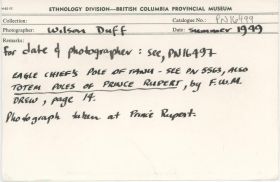 ETHNOLOGY DIVISION—BRITISH COLUMBIA PROVINCIAL MUSEUM
Collection: Catalogue No.: PN16499
Photographer: Wilson Duff Date: Summer 1949
Remarks:
For date & photographer: see, PN16497
EAGLE CHIEF'S POLE OF TANU - SEE PN 5563, ALSO
TOTEM POLES OF PRINCE RUPERT, by F.W.M.
DREW, page 14.
Photograph taken at Prince Rupert.